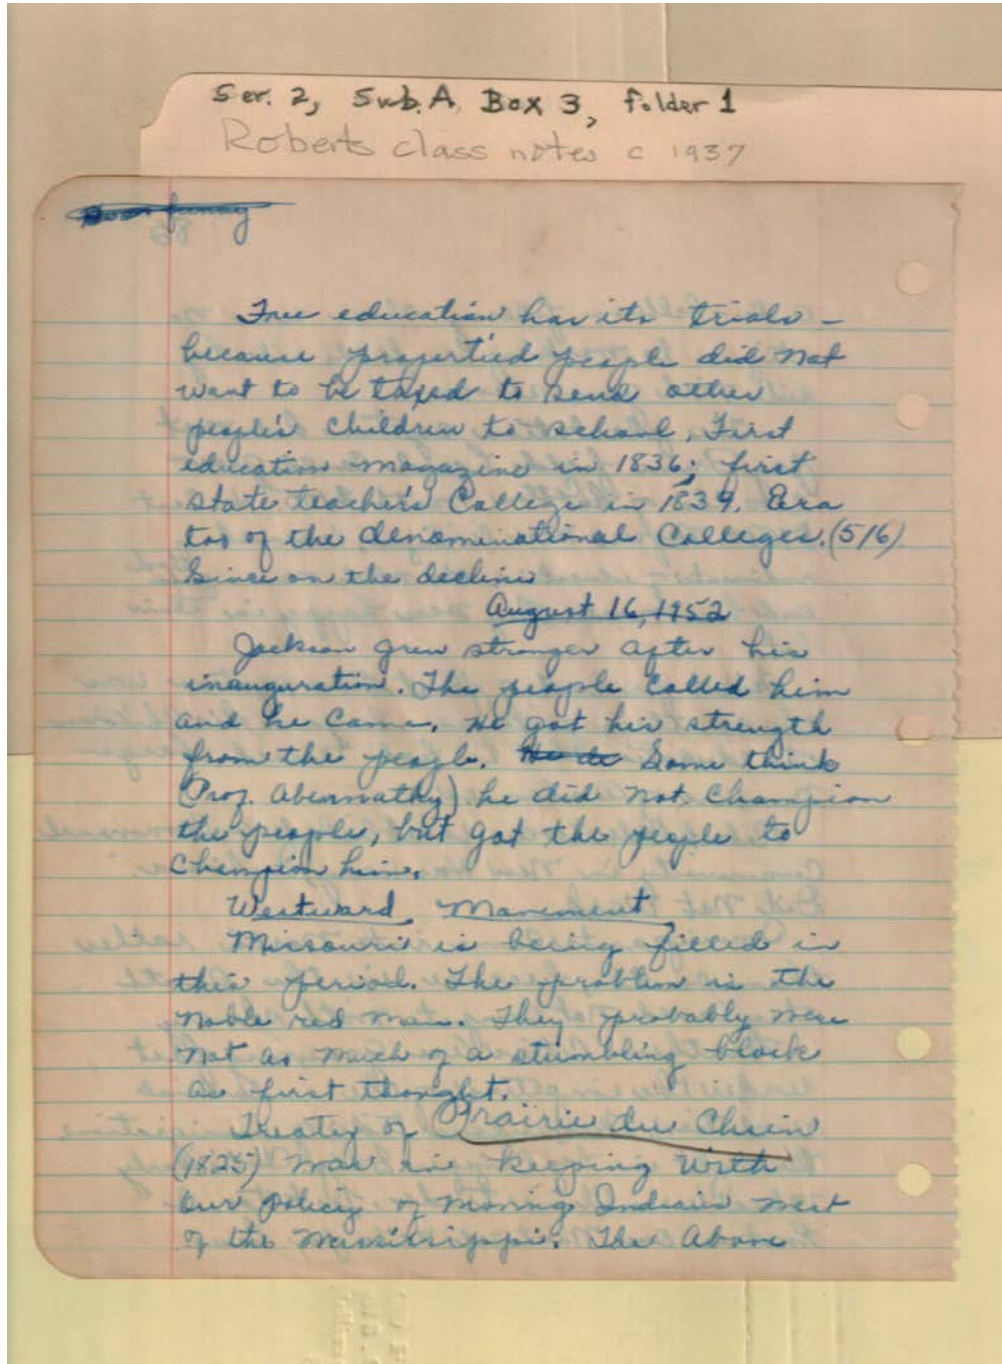 Ser. 2, Sub. A, Box 3, folder 1
Roberts class notes c 1937
Free education has its trials –
because propertied people did not
want to be taxed to send other
people's children to school. First
education magazine in 1836; first
state teacher's College in 1839. Era
too of the denominational Colleges. (516)
Since on the decline
August 16, 1952
Jackson grew stronger after his
inauguration. The people called him
and he came. He got his strength
from the people. Some think
(Prof. Abernathy) he did not champion
the people, but got the people to
Champion him.
Westward Movement
Missouri is being filled in
this period. The problem is the
noble red man. They probably were
not as much of a stumbling block
as first thought.
Treaty of Prairie du Chien
(1825) was in keeping with
our policy of moving Indians west
of the Mississippi. The above